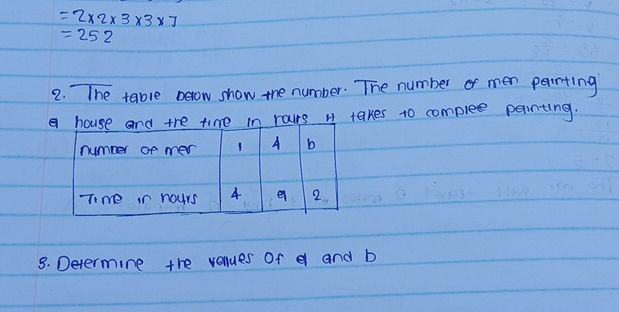 = 2x2x3x3x7
= 252
2. The table below show the number. The number of men painting
a house and the time in hours it takes to complete painting.
number of men 1 4 b
Time in hours 4 a 2
3. Determine the values of a and b